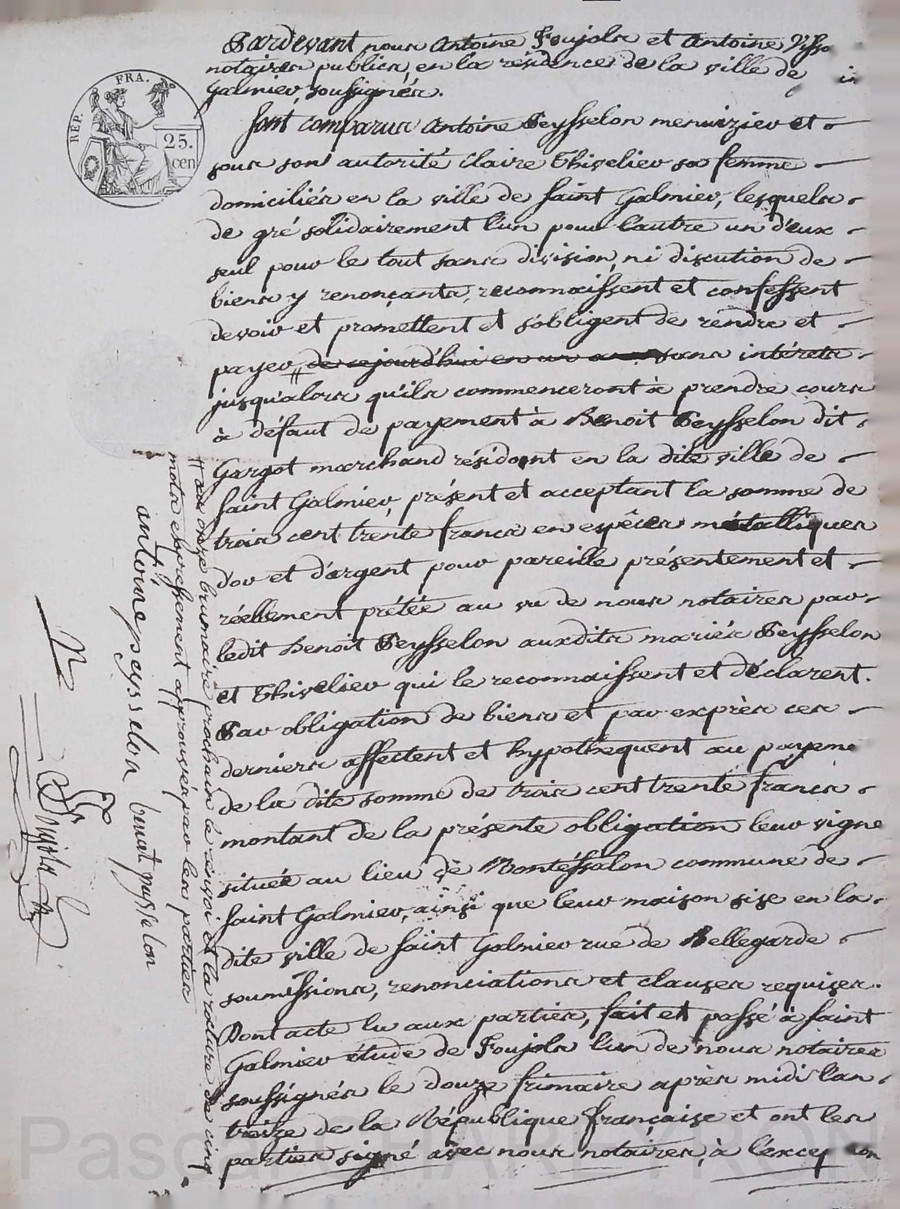 RÉP. FRA.
25.
cen
Pardevant nous Antoine Foujols et Antoine
notaires publics, en la résidence de la ville de
Galmier soussignés.
Sont comparus Antoine Peysselon menuizier et
sous son autorité Claire Thivelier sa femme
domiciliés en la ville de Saint Galmier, lesquels
de gré solidairement l'un pour l'autre un d'eux
seul pour le tout sans division, ni discution de
biens y renonçants, reconnaissent et confessent
devoir et promettent et s'obligent de rendre et
payer de cejourd'hui en un an sans intérets
jusqu'alors qu'ils commenceront à prendre cours
à défaut de payement à Benoit Peysselon dit
Gargot marchand résidant en la dite ville de
Saint Galmier, présent et acceptant la somme de
trois cent trente francs en espèces métalliques
d'or et d'argent pour pareille présentement et
réellement prêtée au vu de nous notaires par
ledit Benoit Peysselon auxdits mariés Peysselon
et Thivelier qui le reconnaissent et déclarent.
Par obligation de biens et par exprès ces
derniers affectent et hypothèquent au payeme
de la dite somme de trois cent trente francs
montant de la présente obligation leur vigne
située au lieu de Montésselon commune de
Saint Galmier, ainsi que leur maison sise en la
dite ville de Saint Galmier rue de Bellegarde
soumissions, renonciations et clauses requises.
Dont acte lu aux parties, fait et passé à Saint
Galmier étude de Foujols l'un de nous notaires
soussignés le douze frimaire après midi l'an
treize de la République française et ont les
parties signé avec nous notaires, à l'excep on
# au onze brumaire prochain le renvoi et la rature de cinq
mots expressément approuvés par les parties
antoine peysselon benoit peysselon
Foujols
Pascal CHAREYRON